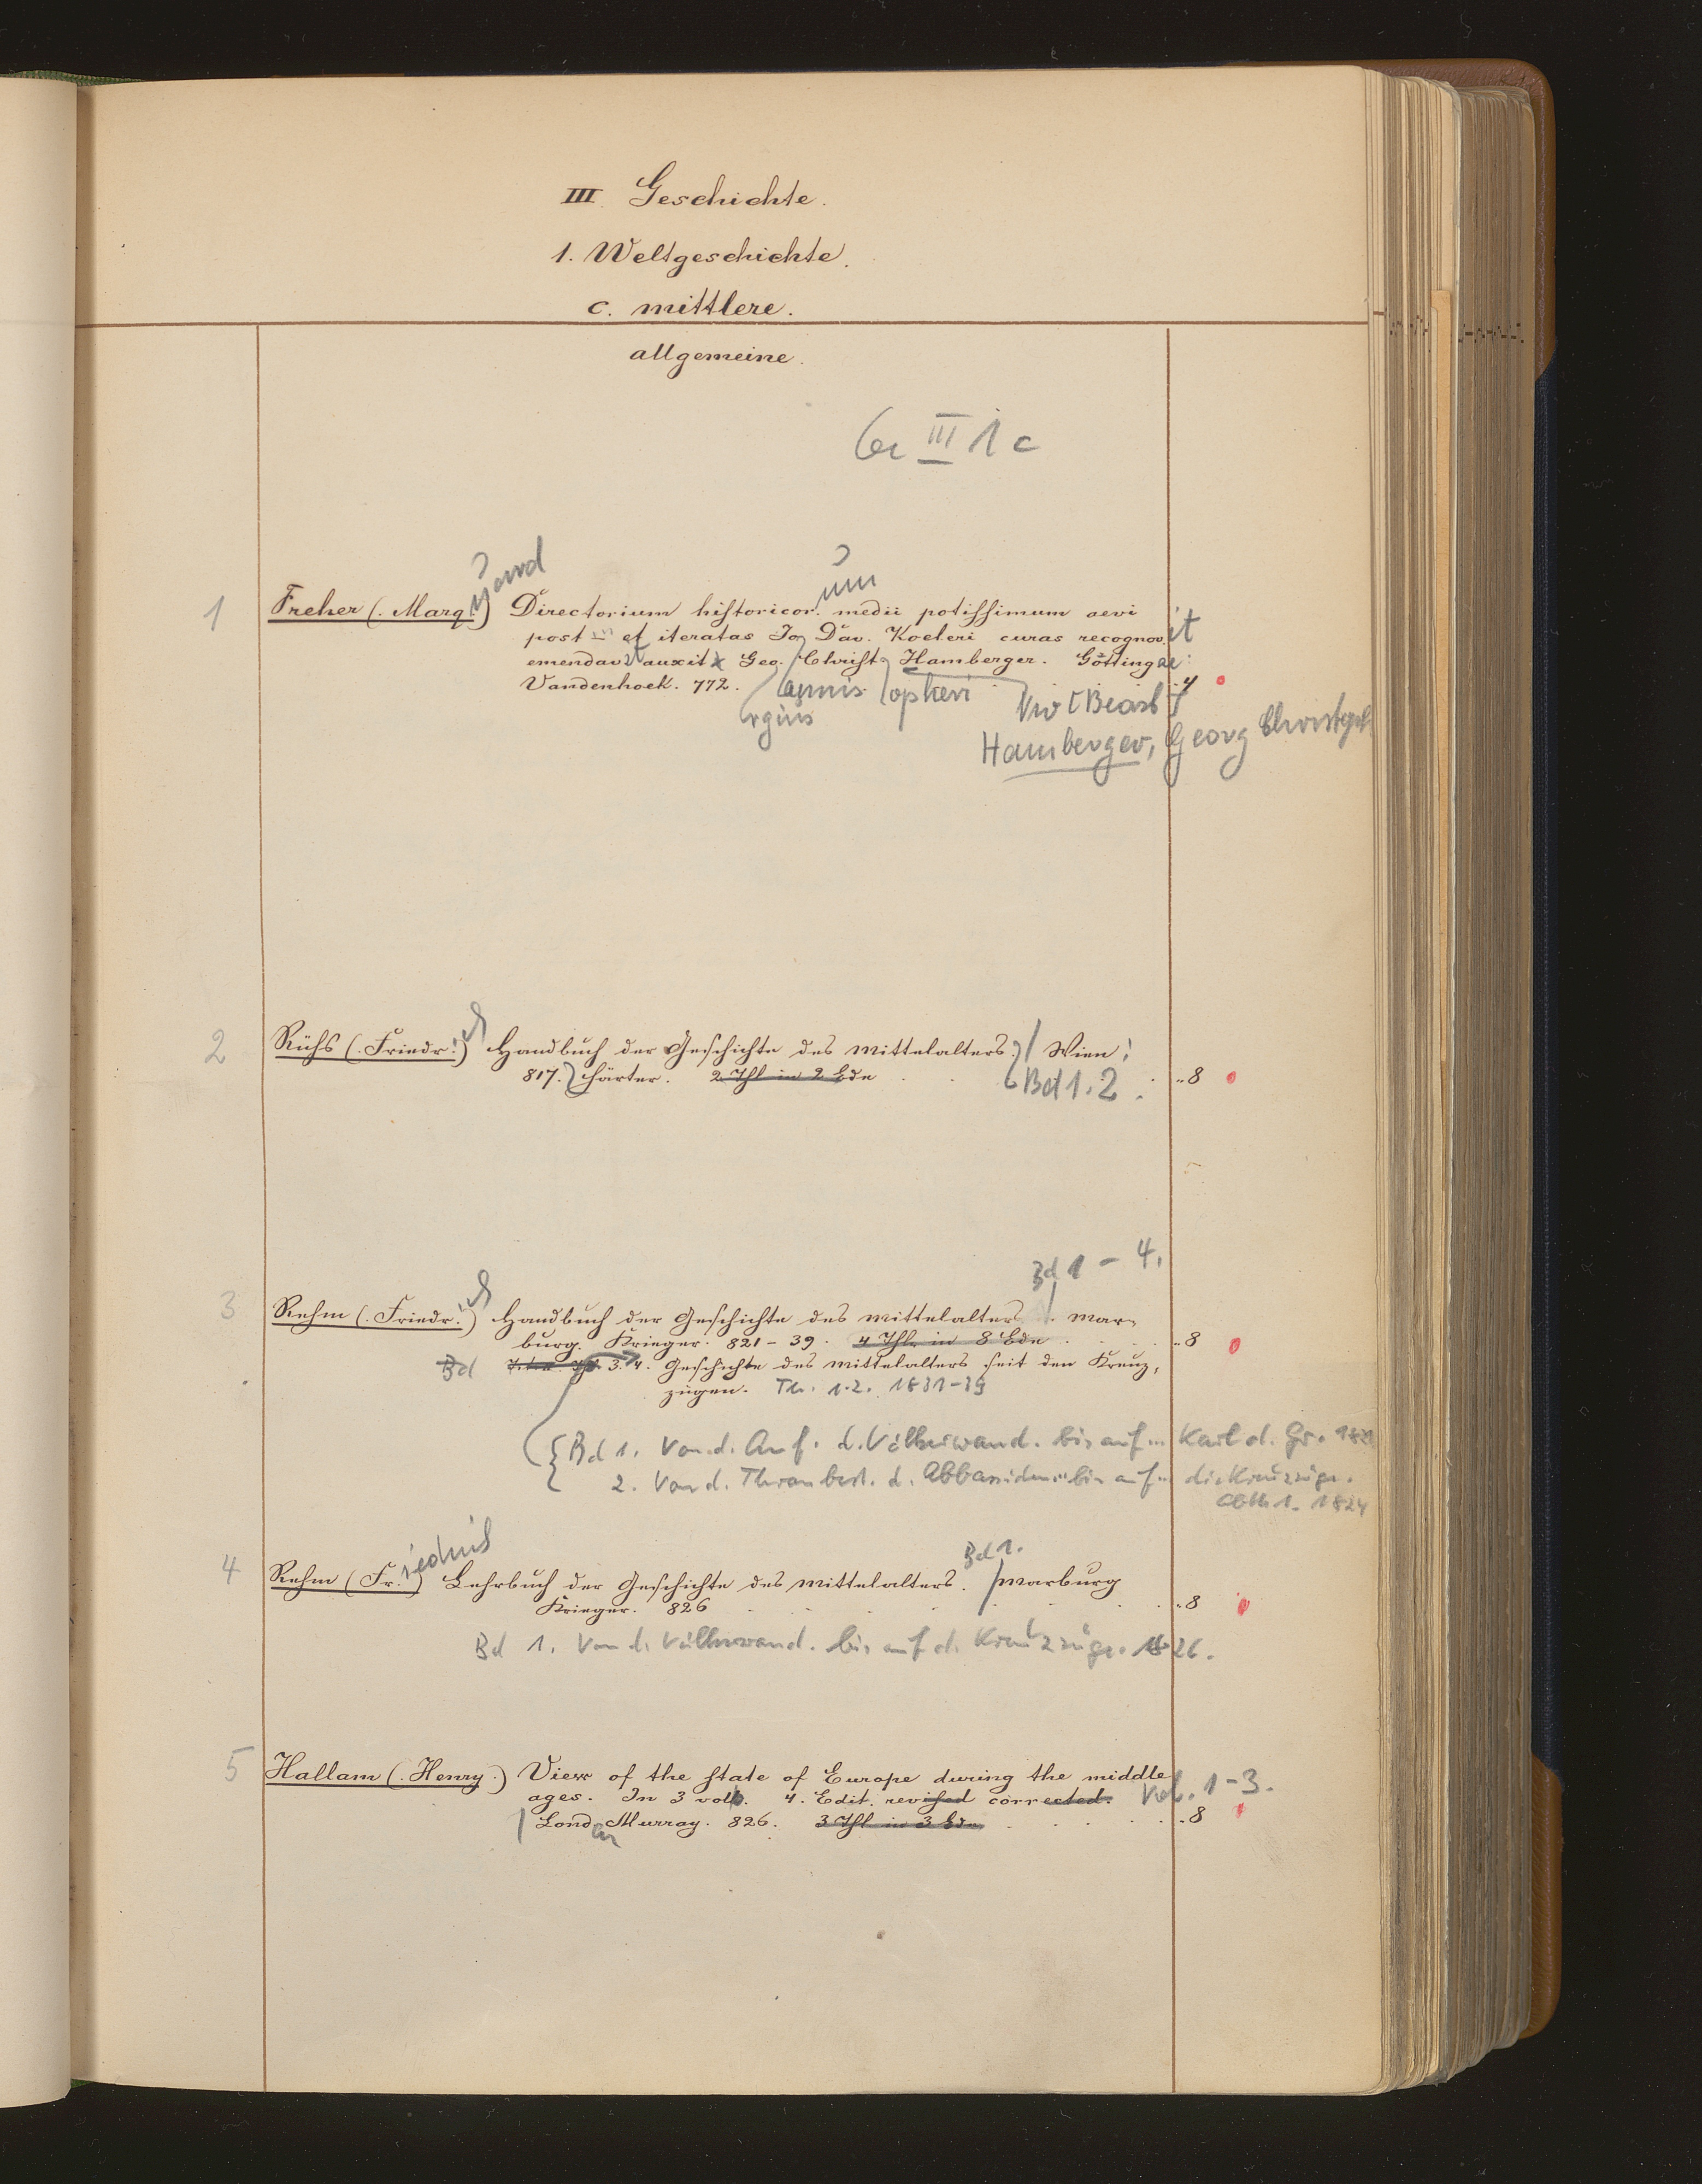 III. Geschichte.
1. Weltgeschichte.
c. mittlere.
allgemeine.
III 1 c
1 Freher (. Marq.) Directorium historicor. medii potissimum aevi
um
post et iteratas Jo Dav. Koeleri curas recognov. it
emendav auxit Geo. Christ Hamberger. Götting ae
Vandenhoek. 772. 4
annis opheri
rgius
Hamberger, Georg Christoph
2 Rühs (. Friedr. ) Handbuch der Geschichte des Mittelalters. Wien
817. Härter. 2 Thl in 2 Bde Bd 1. 2. 8
Bd 1 - 4.
3 Rehm (. Friedr. ) Handbuch der Geschichte des Mittelalters. Mar-
burg. Krieger. 821 - 39. 4 Thle in 8 Bde 8
Bd 3. 4. Geschichte des Mittelalters seit den Kreuz-
zügen. Th. 1.2. 1831-39
Bd 1. Von d. Anf. d. Völkerwand. bis auf ... Karl d. Gr. 1821
2. Von d. Thronbest. d. Abbasiden bis auf die Kreuzzüge.
Abth 1. 1824
Bd 1.
4 Rehm (Fr. iedrich) Lehrbuch der Geschichte des Mittelalters. Marburg
Krieger. 826 8
Bd 1. Von d. Völkerwand. bis auf d. Kreuzzüge. 1826.
5 Hallam (. Henry.) View of the state of Europe during the middle
ages. In 3 vol. 4. Edit. revised corrected. Vol. 1-3.
Lond on Murray. 826. 3 Thl in 3 Bde 8